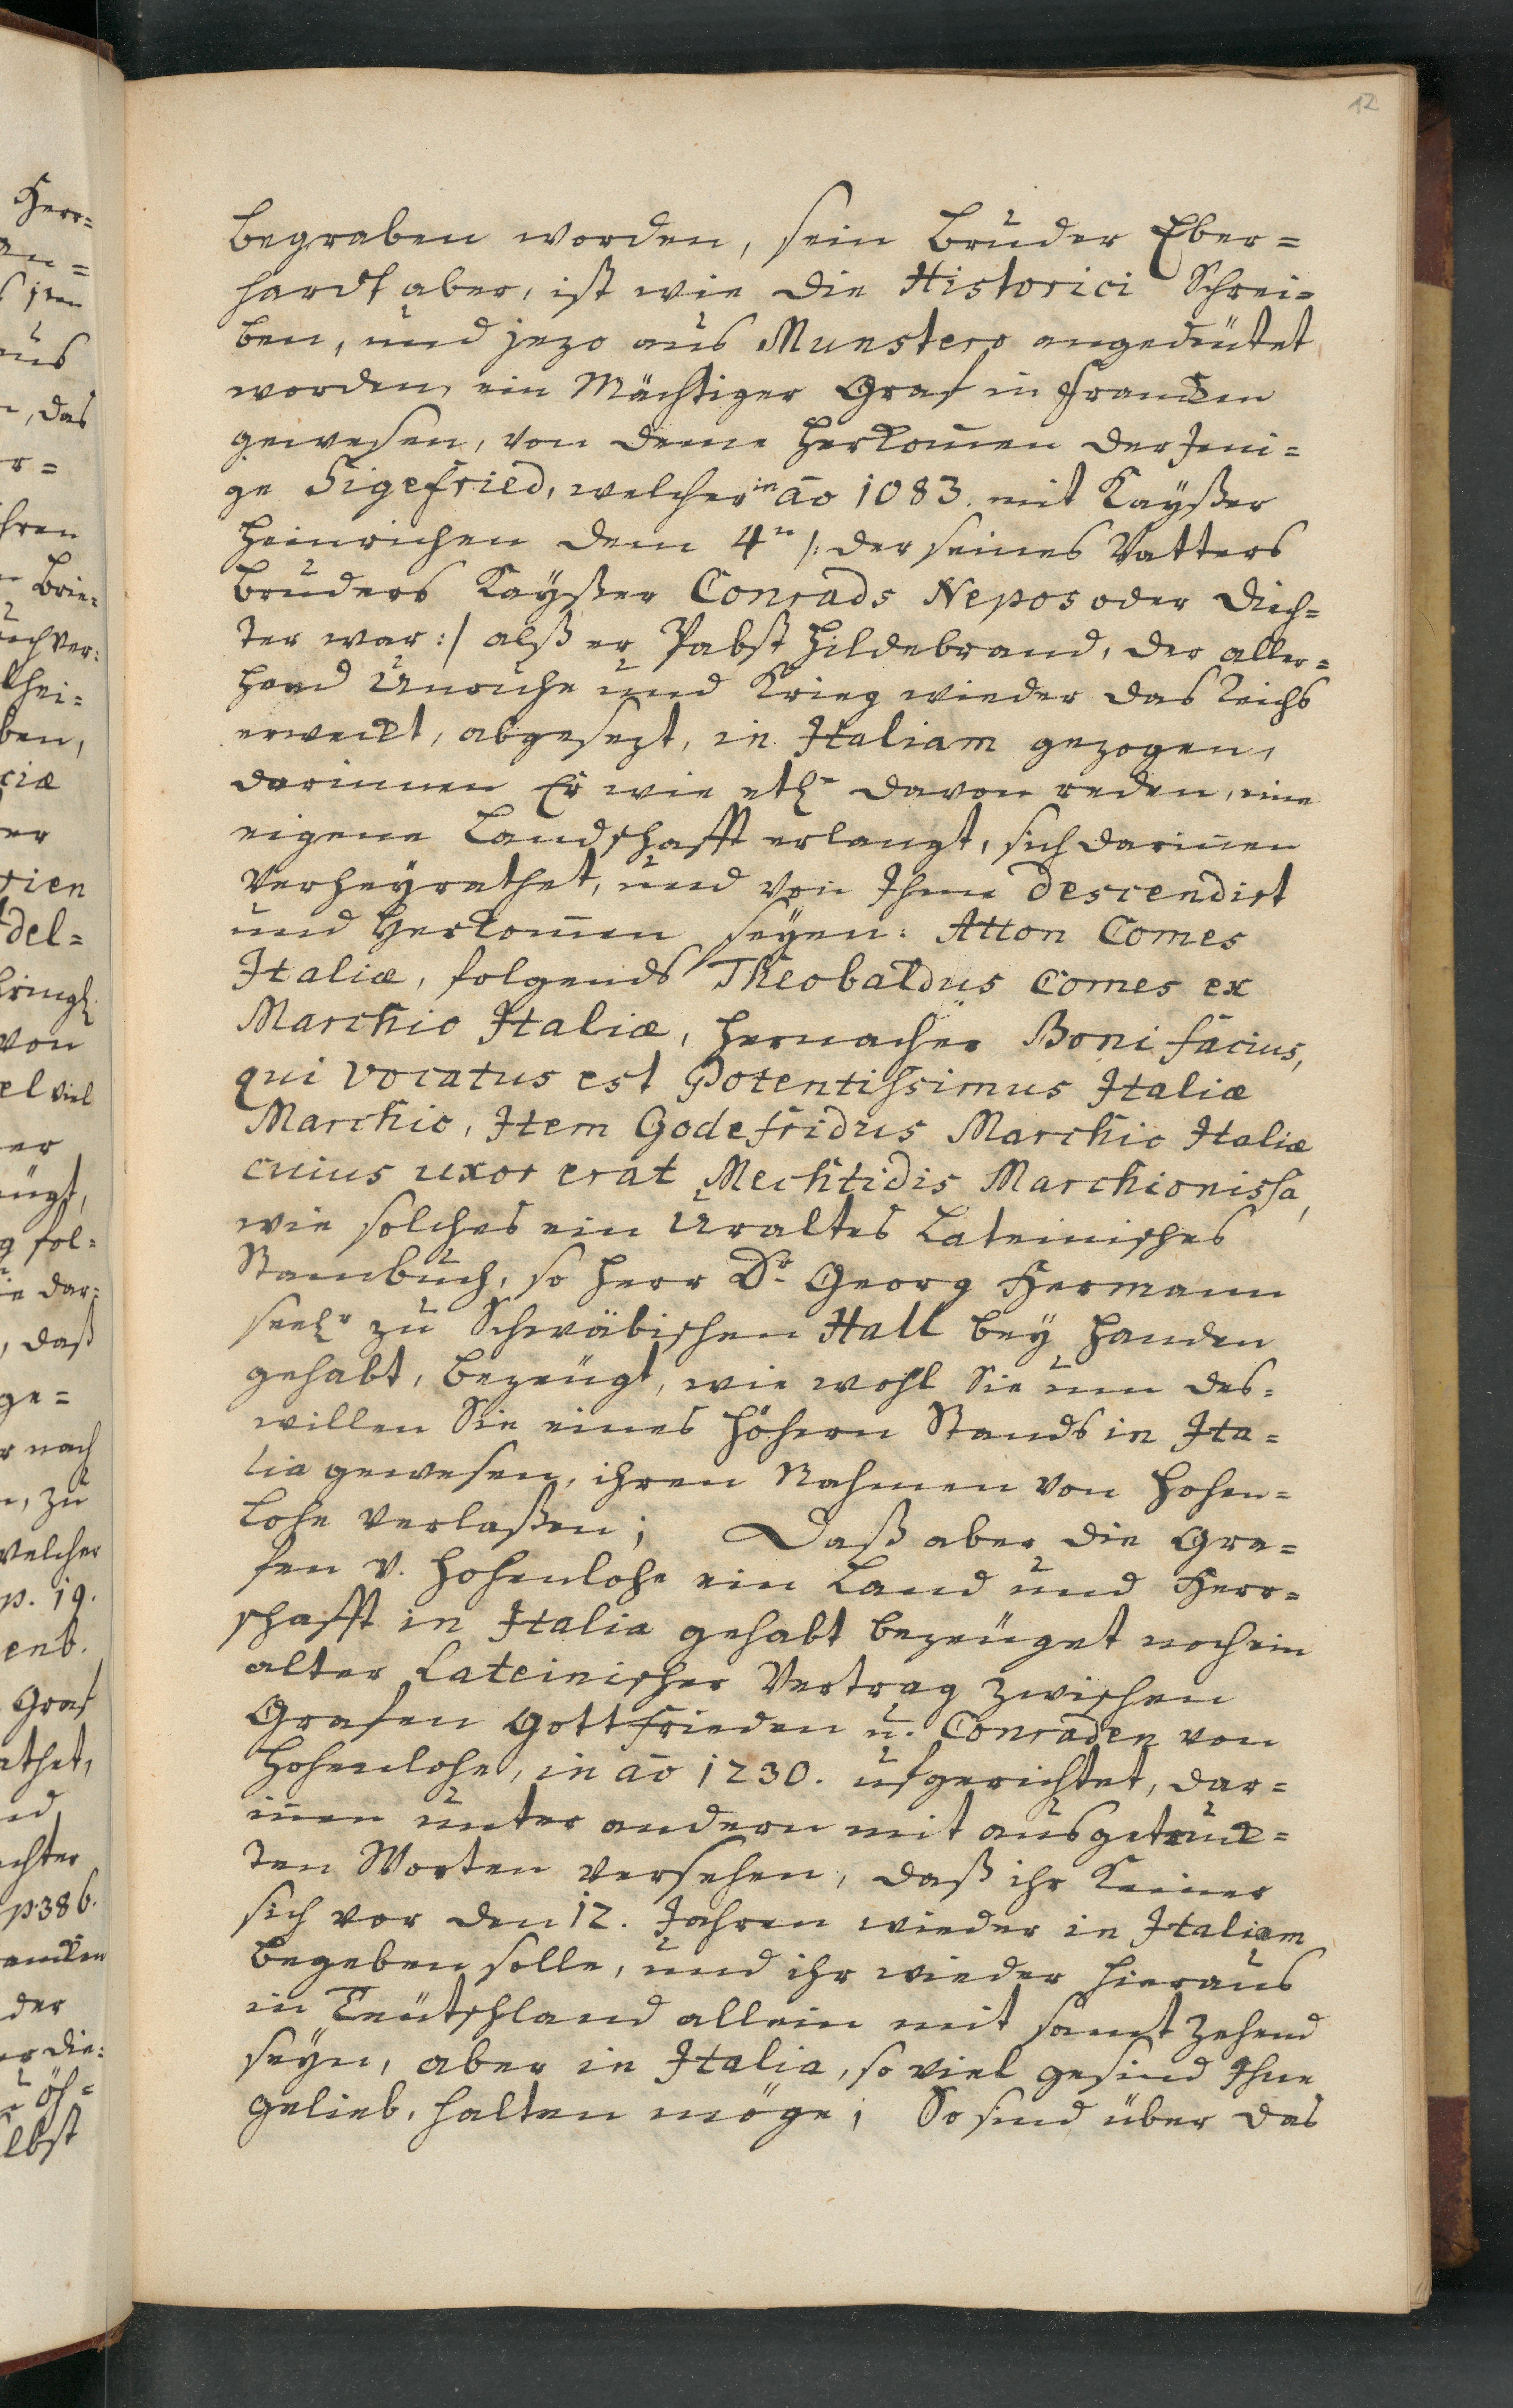 12
begraben worden, sein Bruder Eber=
hardt aber, ist wie die Historici Schrei=
ben, und jezo aus Munstero angedeütet
worden, ein Mächtiger Graf in Francken
gewesen, von deme herkom̄en derjeni=
ge Sigefried, welcher in aō 1083. mit Kaÿßer
Heinrichen dem 4n /: der seines Vatters
Bruders Kaÿßer Conrads Nepos oder Dich=
ter war :/ alß er Pabst Hildebrand, der aller=
hand Unruhe und Krieg wieder das Reichs
erweckt, abgesezt, in Italiam gezogen,
darinnen Er wie etl. davon reden, eine
eigene Landschafft erlangt, sich darin̄en
verheÿrathet, und von Ihme descendirt
und herkom̄en seÿen: Atton Comes
Italiæ, folgends Theobaldus Comes ex
Marchio Italiæ, hernacher Bonifacius,
qui vocatus est Potentissimus Italiæ
Marchio, Item Godefridus Marchio Italiæ
cuius uxor erat Mechtidis Marchionissa,
wie solches ein Uraltes Lateinisches
Stambuch, so Herr Dr. Georg Hermann
seelr zu Schwäbischen Hall beÿ handen
gehabt, bezeügt, wie wohl Sie um des=
willen Sie eines höhern Stands in Ita=
lia gewesen, ihren Nahmen von Hohen=
lohe verlaßen; Daß aber die Gra=
fen v. Hohenlohe ein Land und Herr=
schafft in Italia gehabt bezeüget noch ein
alter Lateinischer Vertrag zwischen
Grafen Gottfrieden u. Conraden von
Hohenlohe, in aō 1230. ufgerichtet, dar=
in̄en unter andern mit ausgetruck=
ten Worten versehen, daß ihr Keiner
sich vor den 12. Jahren wieder in Italiam
begeben solle, und ihr wieder hieraus
in Teütschland allein mit samt Zehend
seÿn, aber in Italia, so viel gesind Ihne
gelieb, halten möge; So sind über das